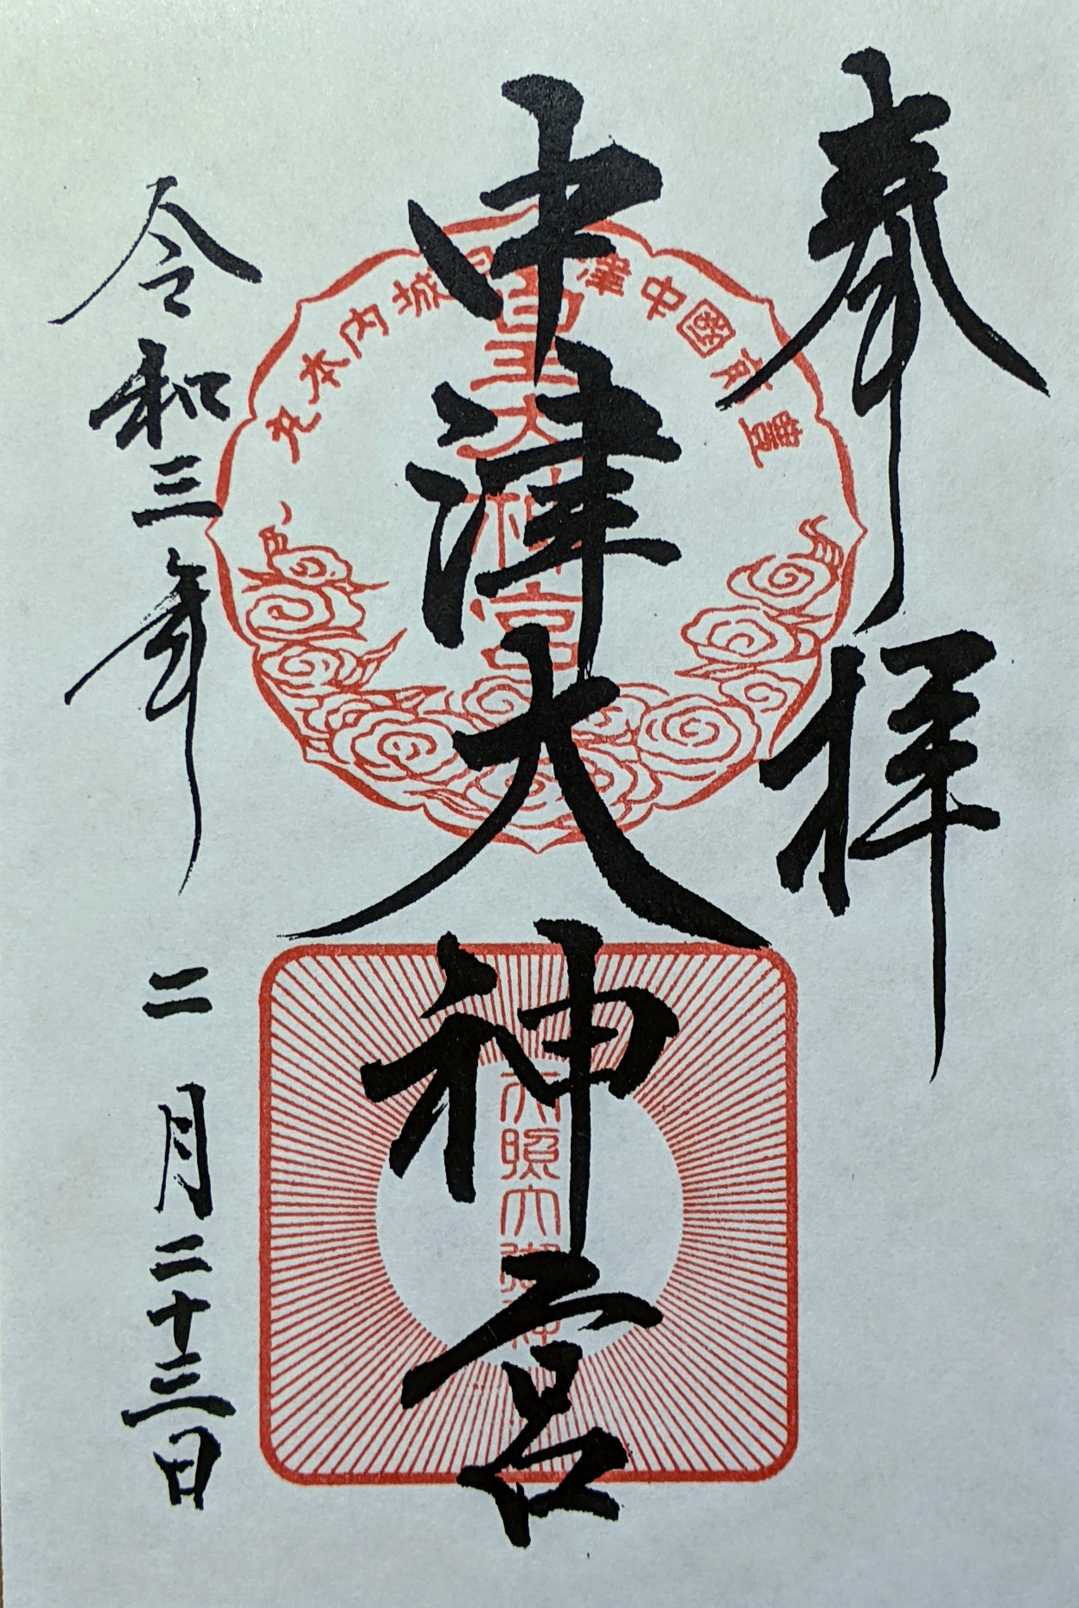 奉拝
中津大神宮
令和三年 二月二十三日
豊前國中津
城内本丸
皇大神宮
天照大御神